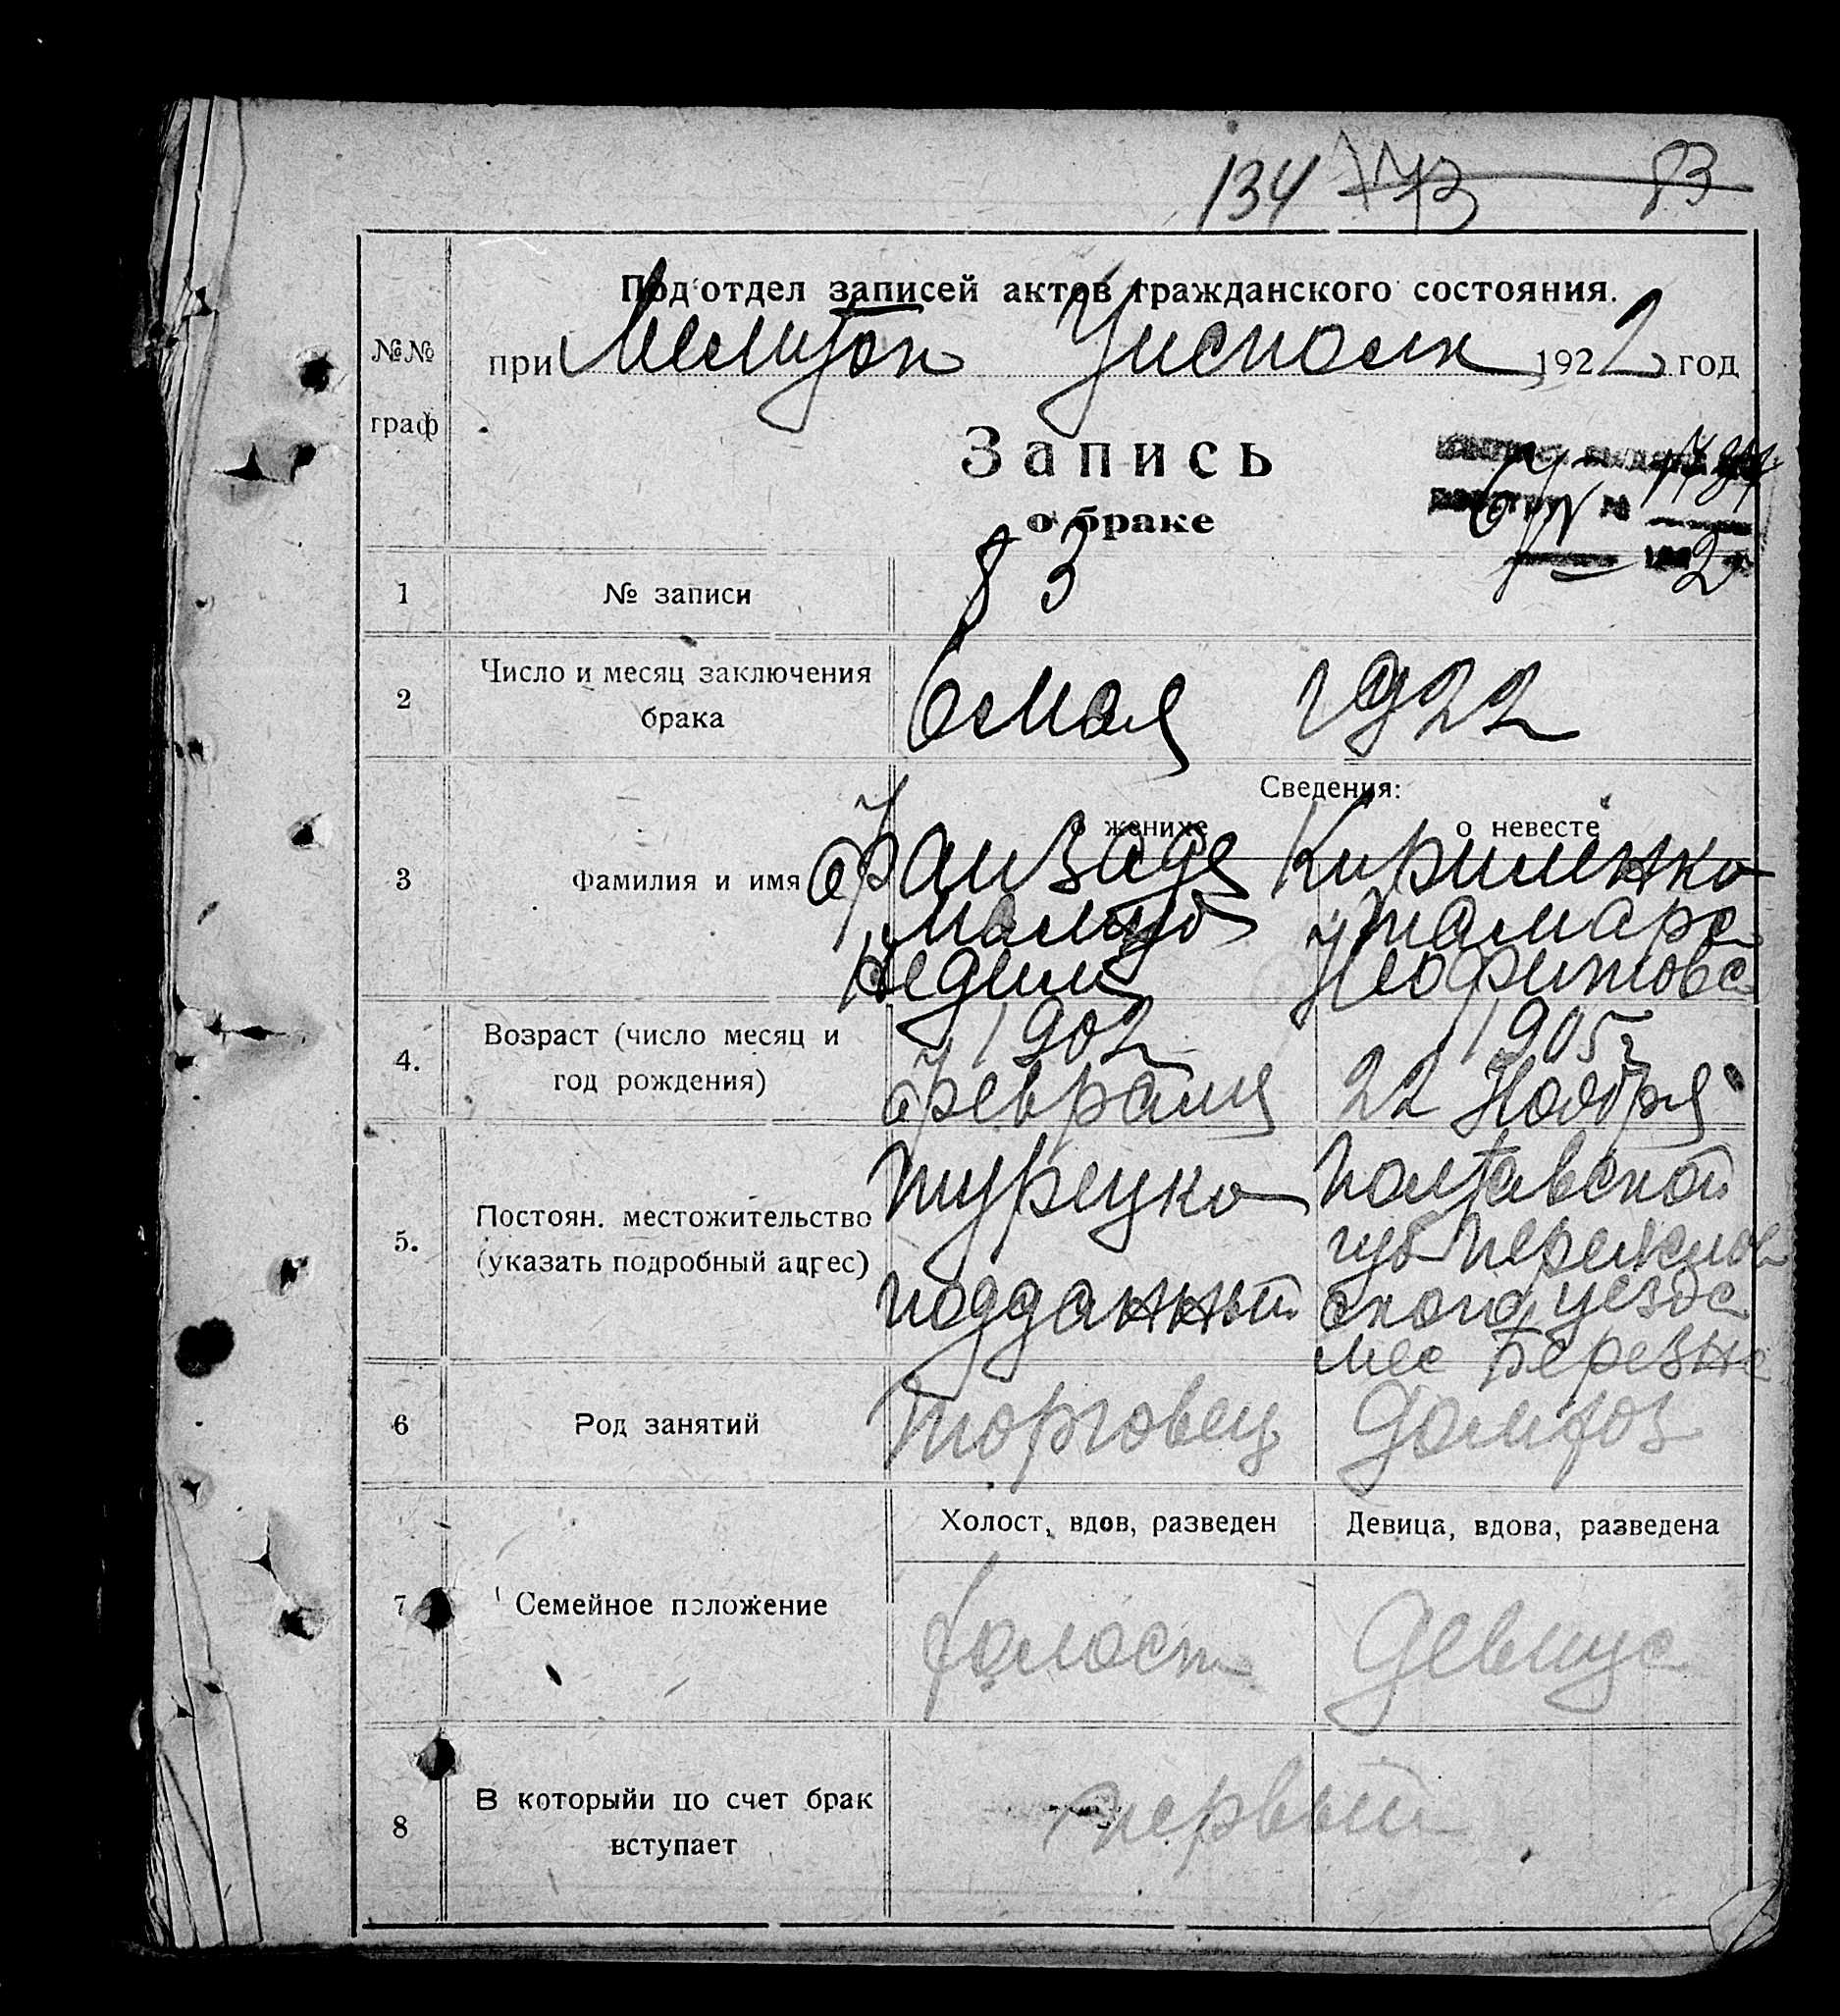 134 83
Под'отдел записей актов гражданского состояния.
№№ граф
при Мелитоп Уисполк 1922 год
Запись
о браке
1 № записи 83
2 Число и месяц заключения брака 6 мая 1922
Сведения:
о женихе о невесте
3 Фамилия и имя
Фаизаде Кириленко
Махмуд Тамара
Недим Неофитова
4. Возраст (число месяц и год рождения)
1902 1905 г
февраля 22 Ноября
5. Постоян. местожительство (указать подробный адрес)
турецко Полтавской
губ Переяслов
подданный ского уезда
мес Березне
6 Род занятий Торговец домхоз
Холост, вдов, разведен Девица, вдова, разведена
7 Семейное положение холост девица
8 В которыйи по счет брак вступает первый